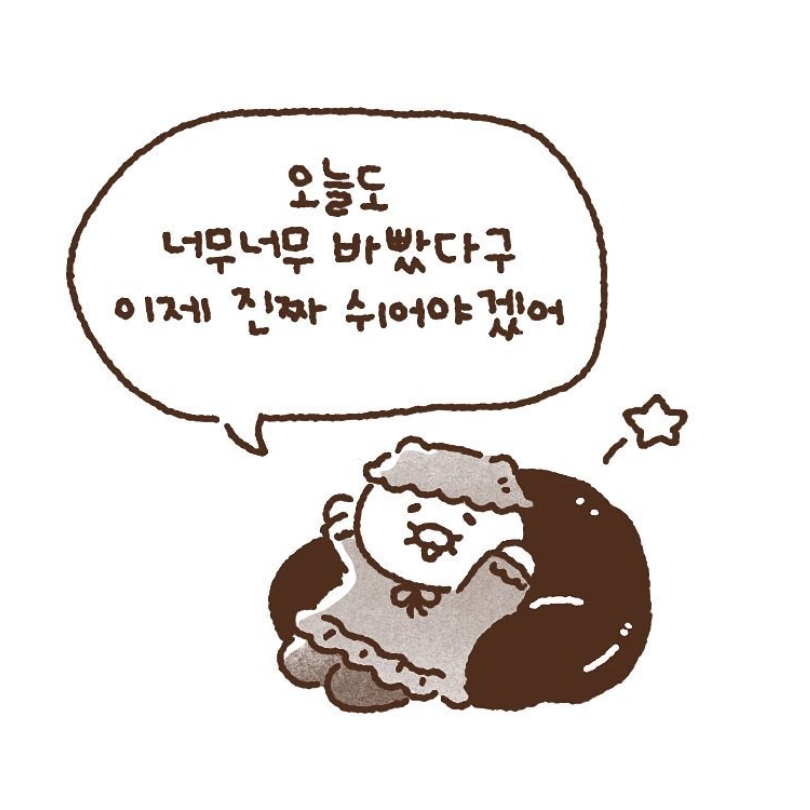 오늘도
너무너무 바빴다구
이제 진짜 쉬어야겠어